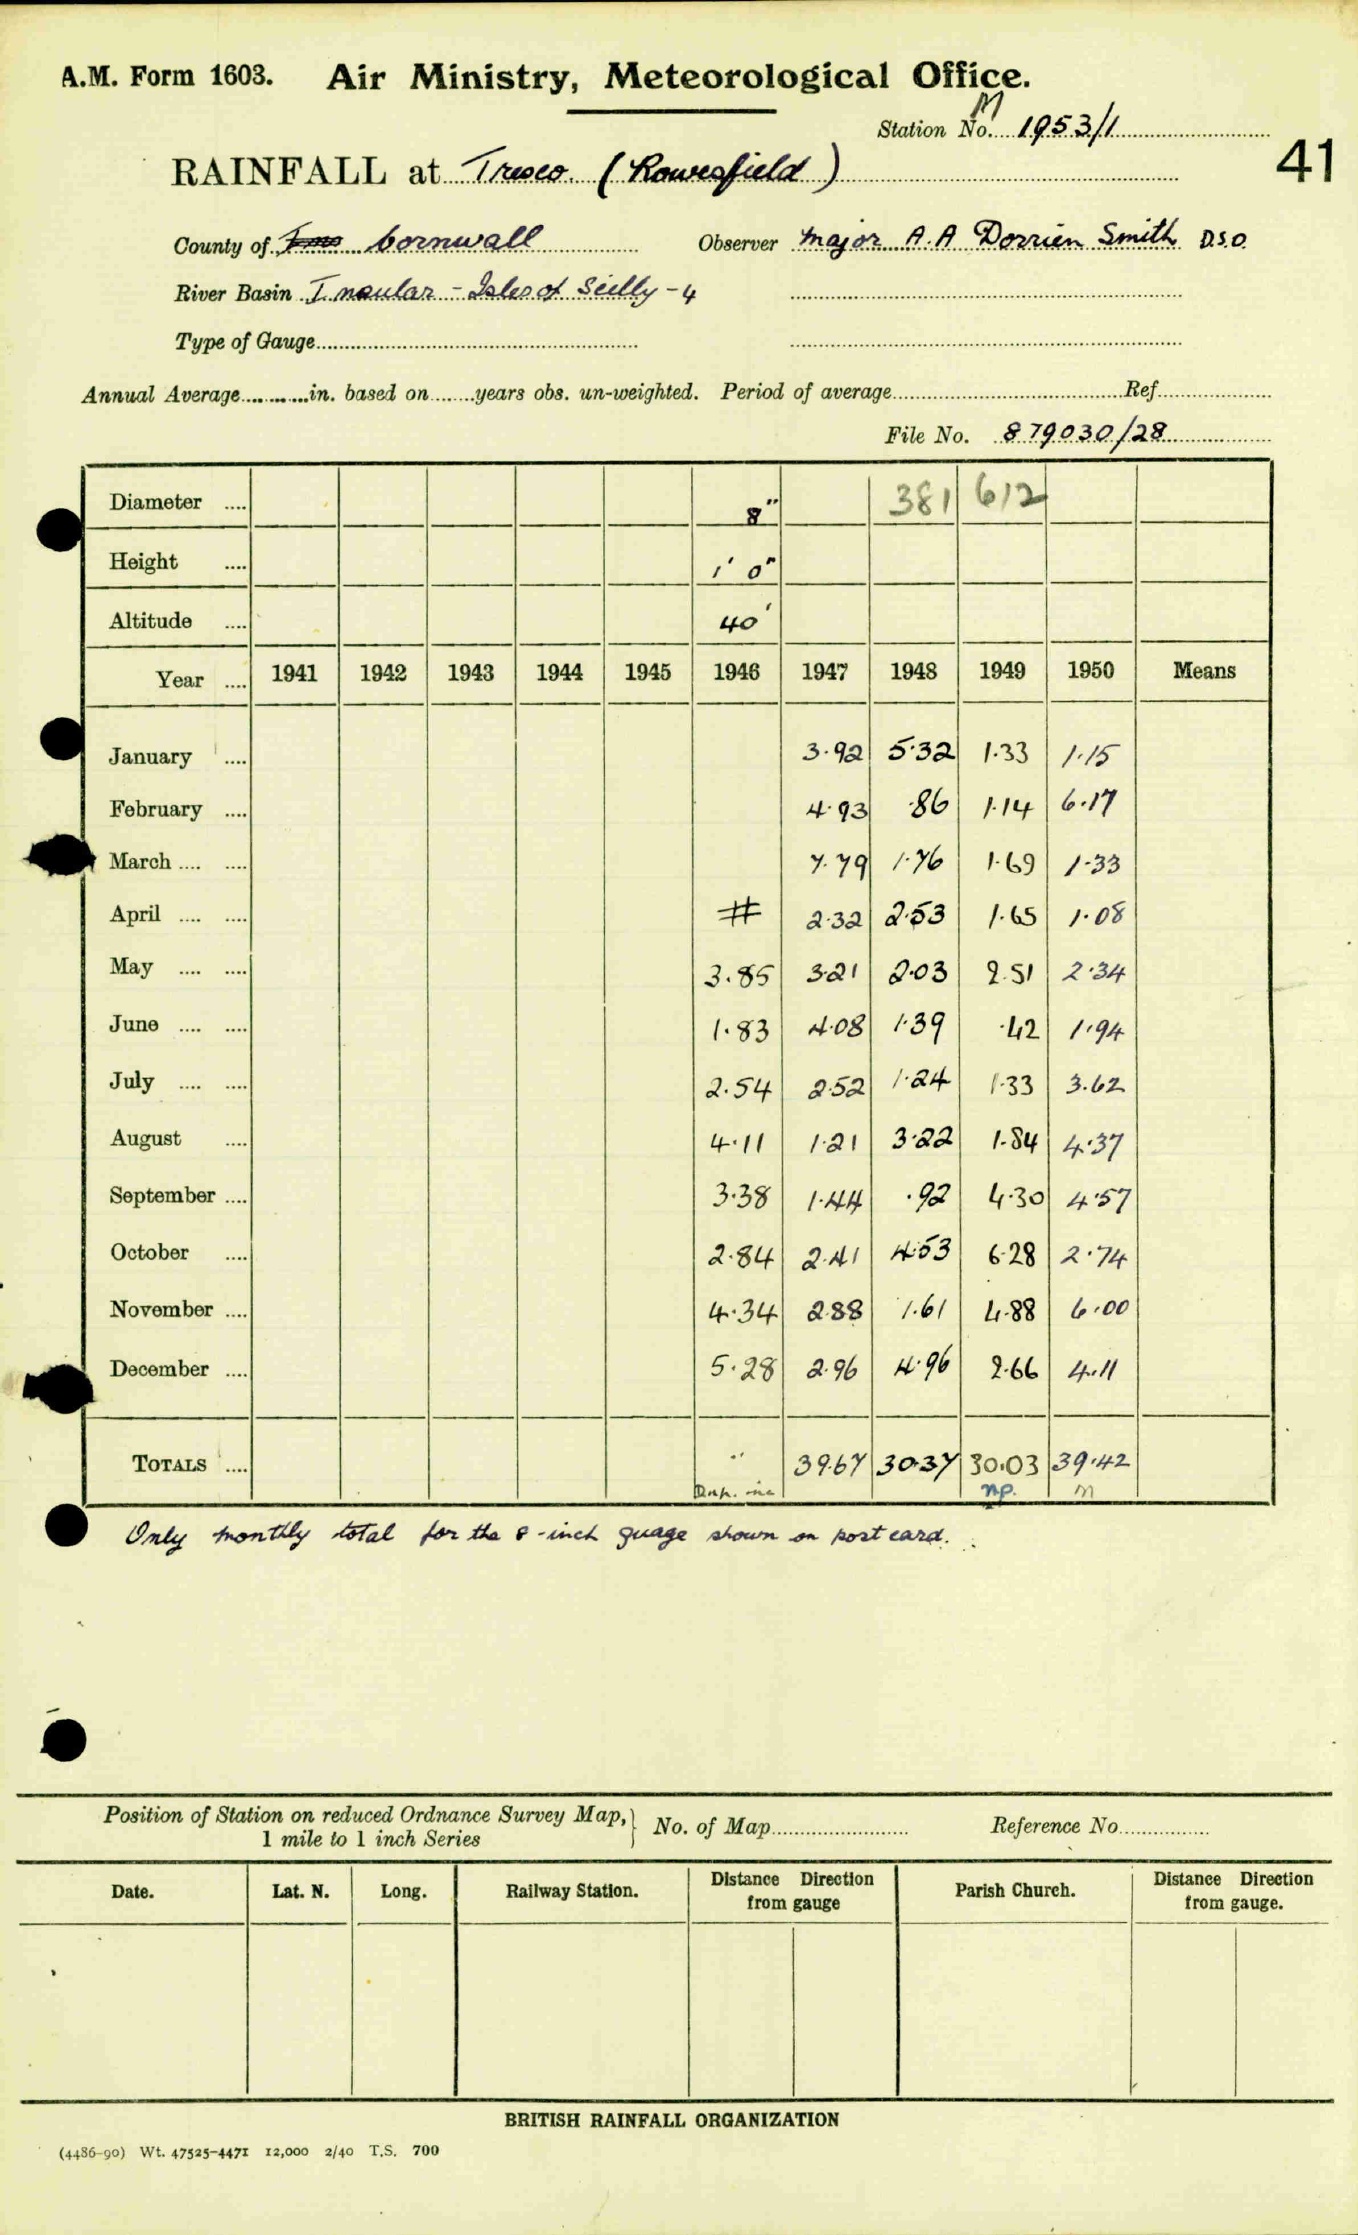 A.M. Form 1603. Air Ministry, Meteorological Office.
Station No. M 1953/1
41
RAINFALL at Tresco (Rowesfield)
County of Cornwall Observer Major A.A Dorrien Smith D.S.O.
River Basin Insular - Isles of Scilly - 4
Type of Gauge
Annual Average in. based on years obs. un-weighted. Period of average Ref.
File No. 879030/28
Diameter 8" 381 612
Height 1' 0"
Altitude 40'
Year 1941 1942 1943 1944 1945 1946 1947 1948 1949 1950 Means
January 3.92 5.32 1.33 1.15
February 4.93 .86 1.14 6.17
March 7.79 1.76 1.69 1.33
April # 2.32 2.53 1.65 1.08
May 3.85 3.21 2.03 2.51 2.34
June 1.83 4.08 1.39 .42 1.94
July 2.54 2.52 1.24 1.33 3.62
August 4.11 1.21 3.22 1.84 4.37
September 3.38 1.44 .92 4.30 4.57
October 2.84 2.41 4.53 6.28 2.74
November 4.34 2.88 1.61 4.88 6.00
December 5.28 2.96 4.96 2.66 4.11
TOTALS 39.67 30.37 30.03 39.42
np. m
Only monthly total for the 8-inch guage shown on post card.
Position of Station on reduced Ordnance Survey Map, No. of Map Reference No
1 mile to 1 inch Series
Date. Lat. N. Long. Railway Station. Distance Direction from gauge Parish Church. Distance Direction from gauge.
BRITISH RAINFALL ORGANIZATION
(4486-90) Wt. 47525-4471 12,000 2/40 T.S. 700